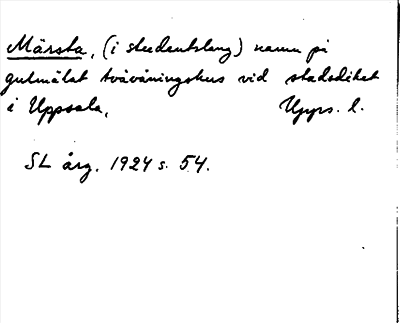 Märsta, (i studentslang) namn på
gulmålat tvåvåningshus vid stadsdiket
i Uppsala, Upps. l.
SL årg. 1924 s. 54.